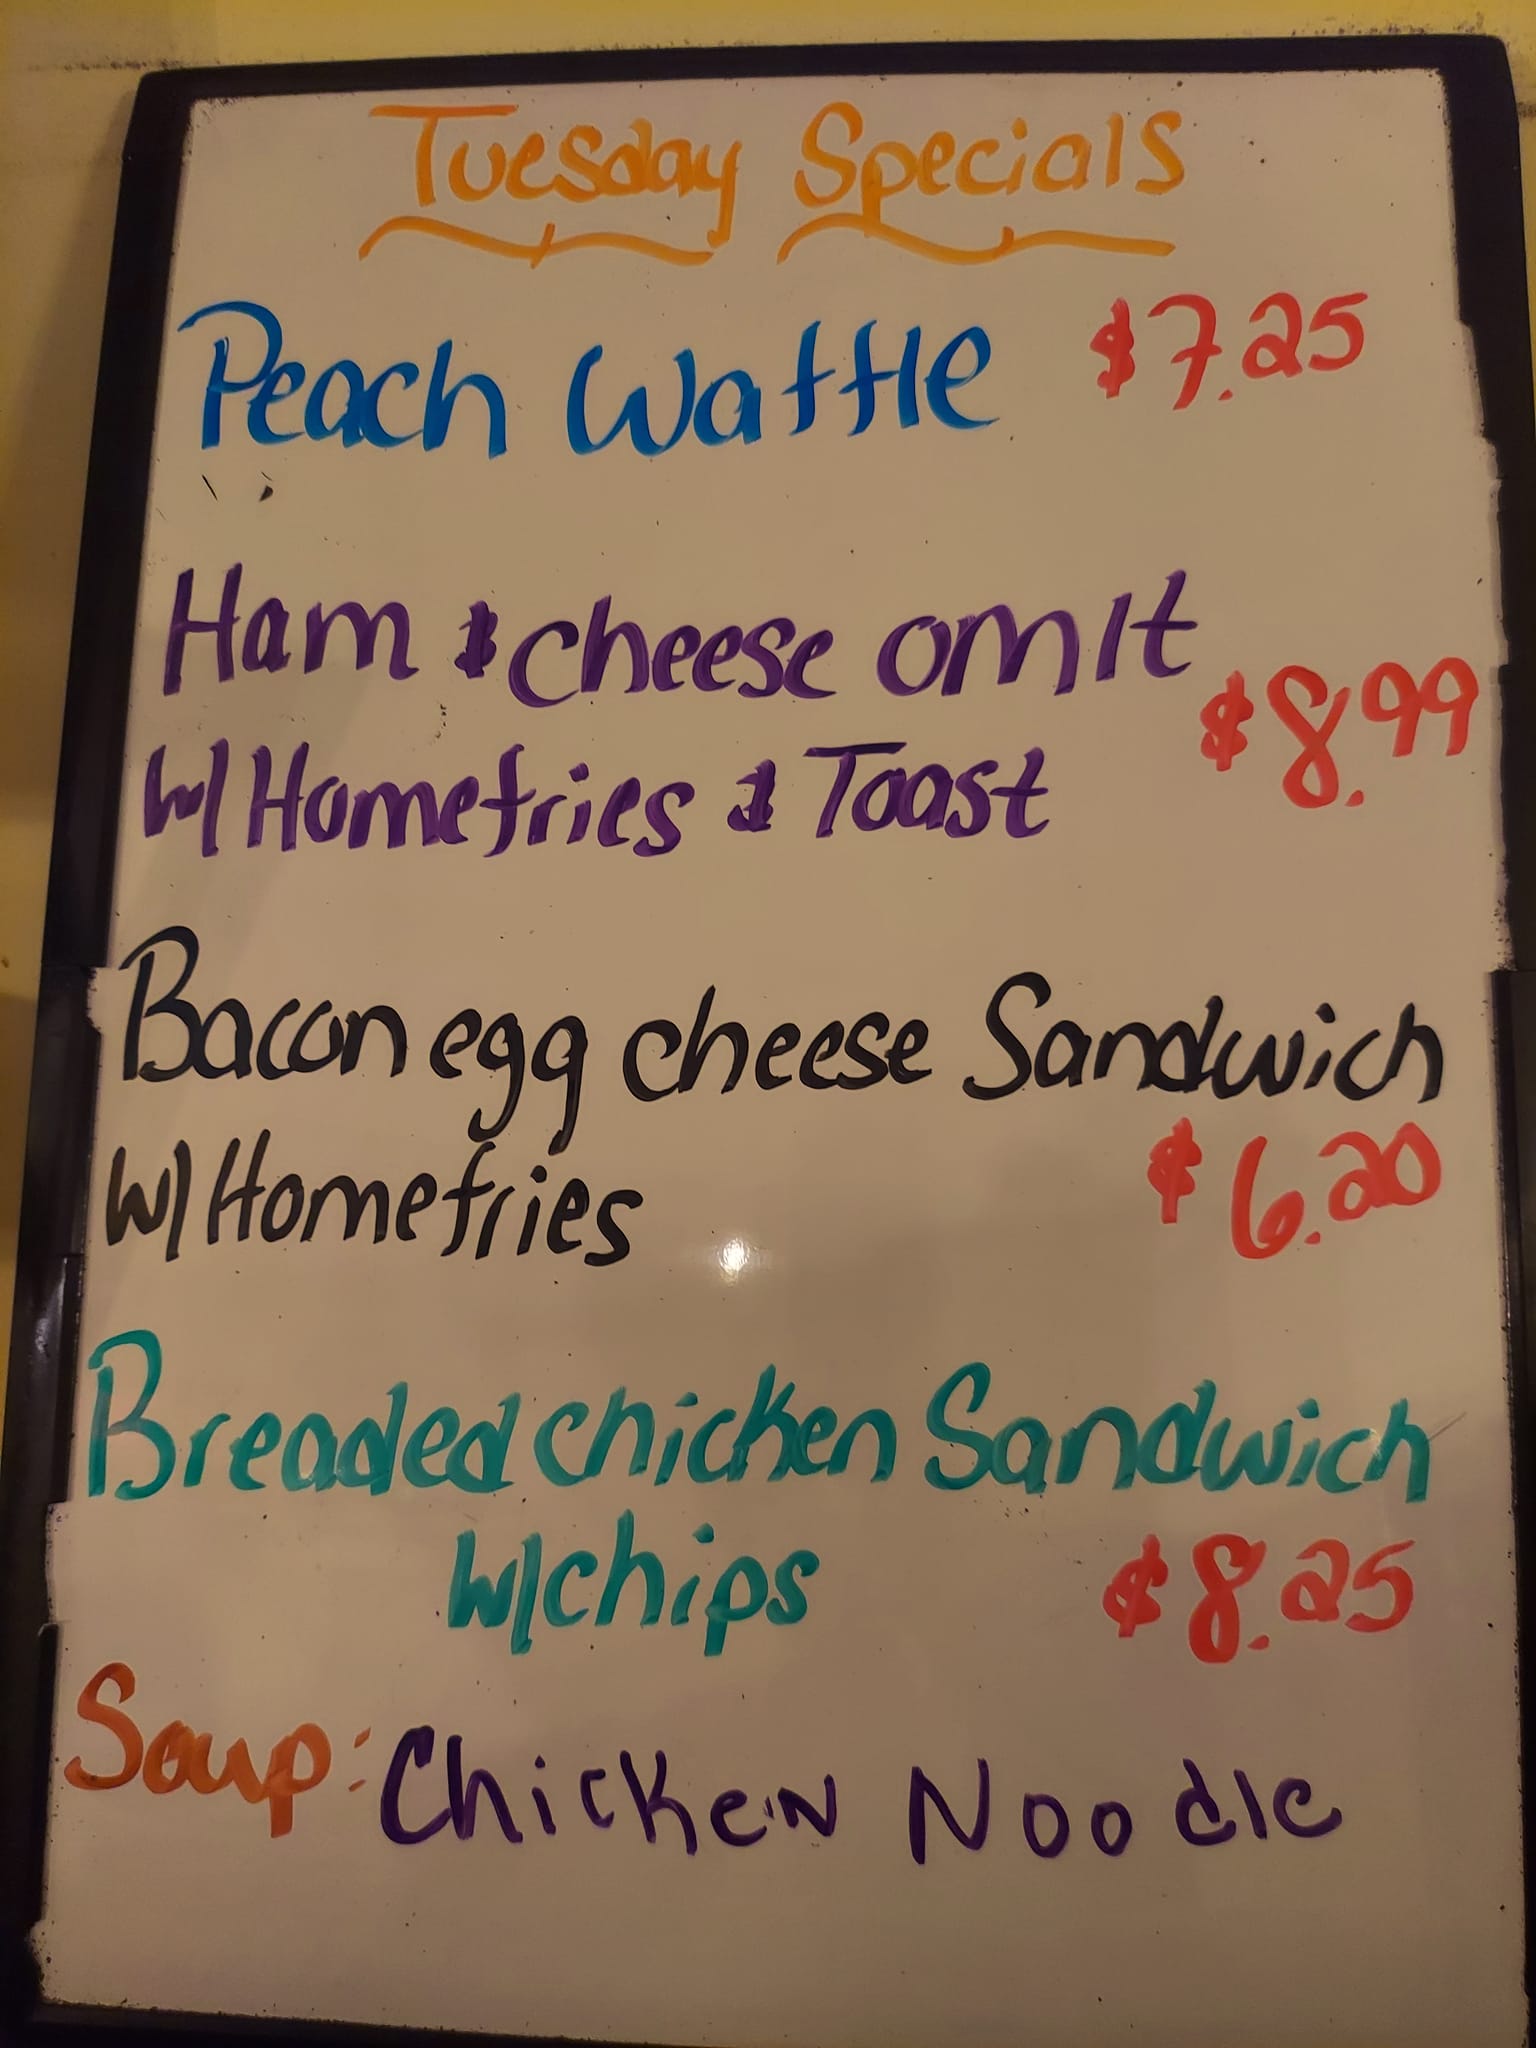 Tuesday Specials
Peach Waffle $7.25
Ham & cheese omlt
$8.99
w/ Homefries & Toast
Bacon egg cheese Sandwich
w/ Homefries $6.20
Breaded chicken Sandwich
w/chips $8.25
Soup: Chicken Noodle